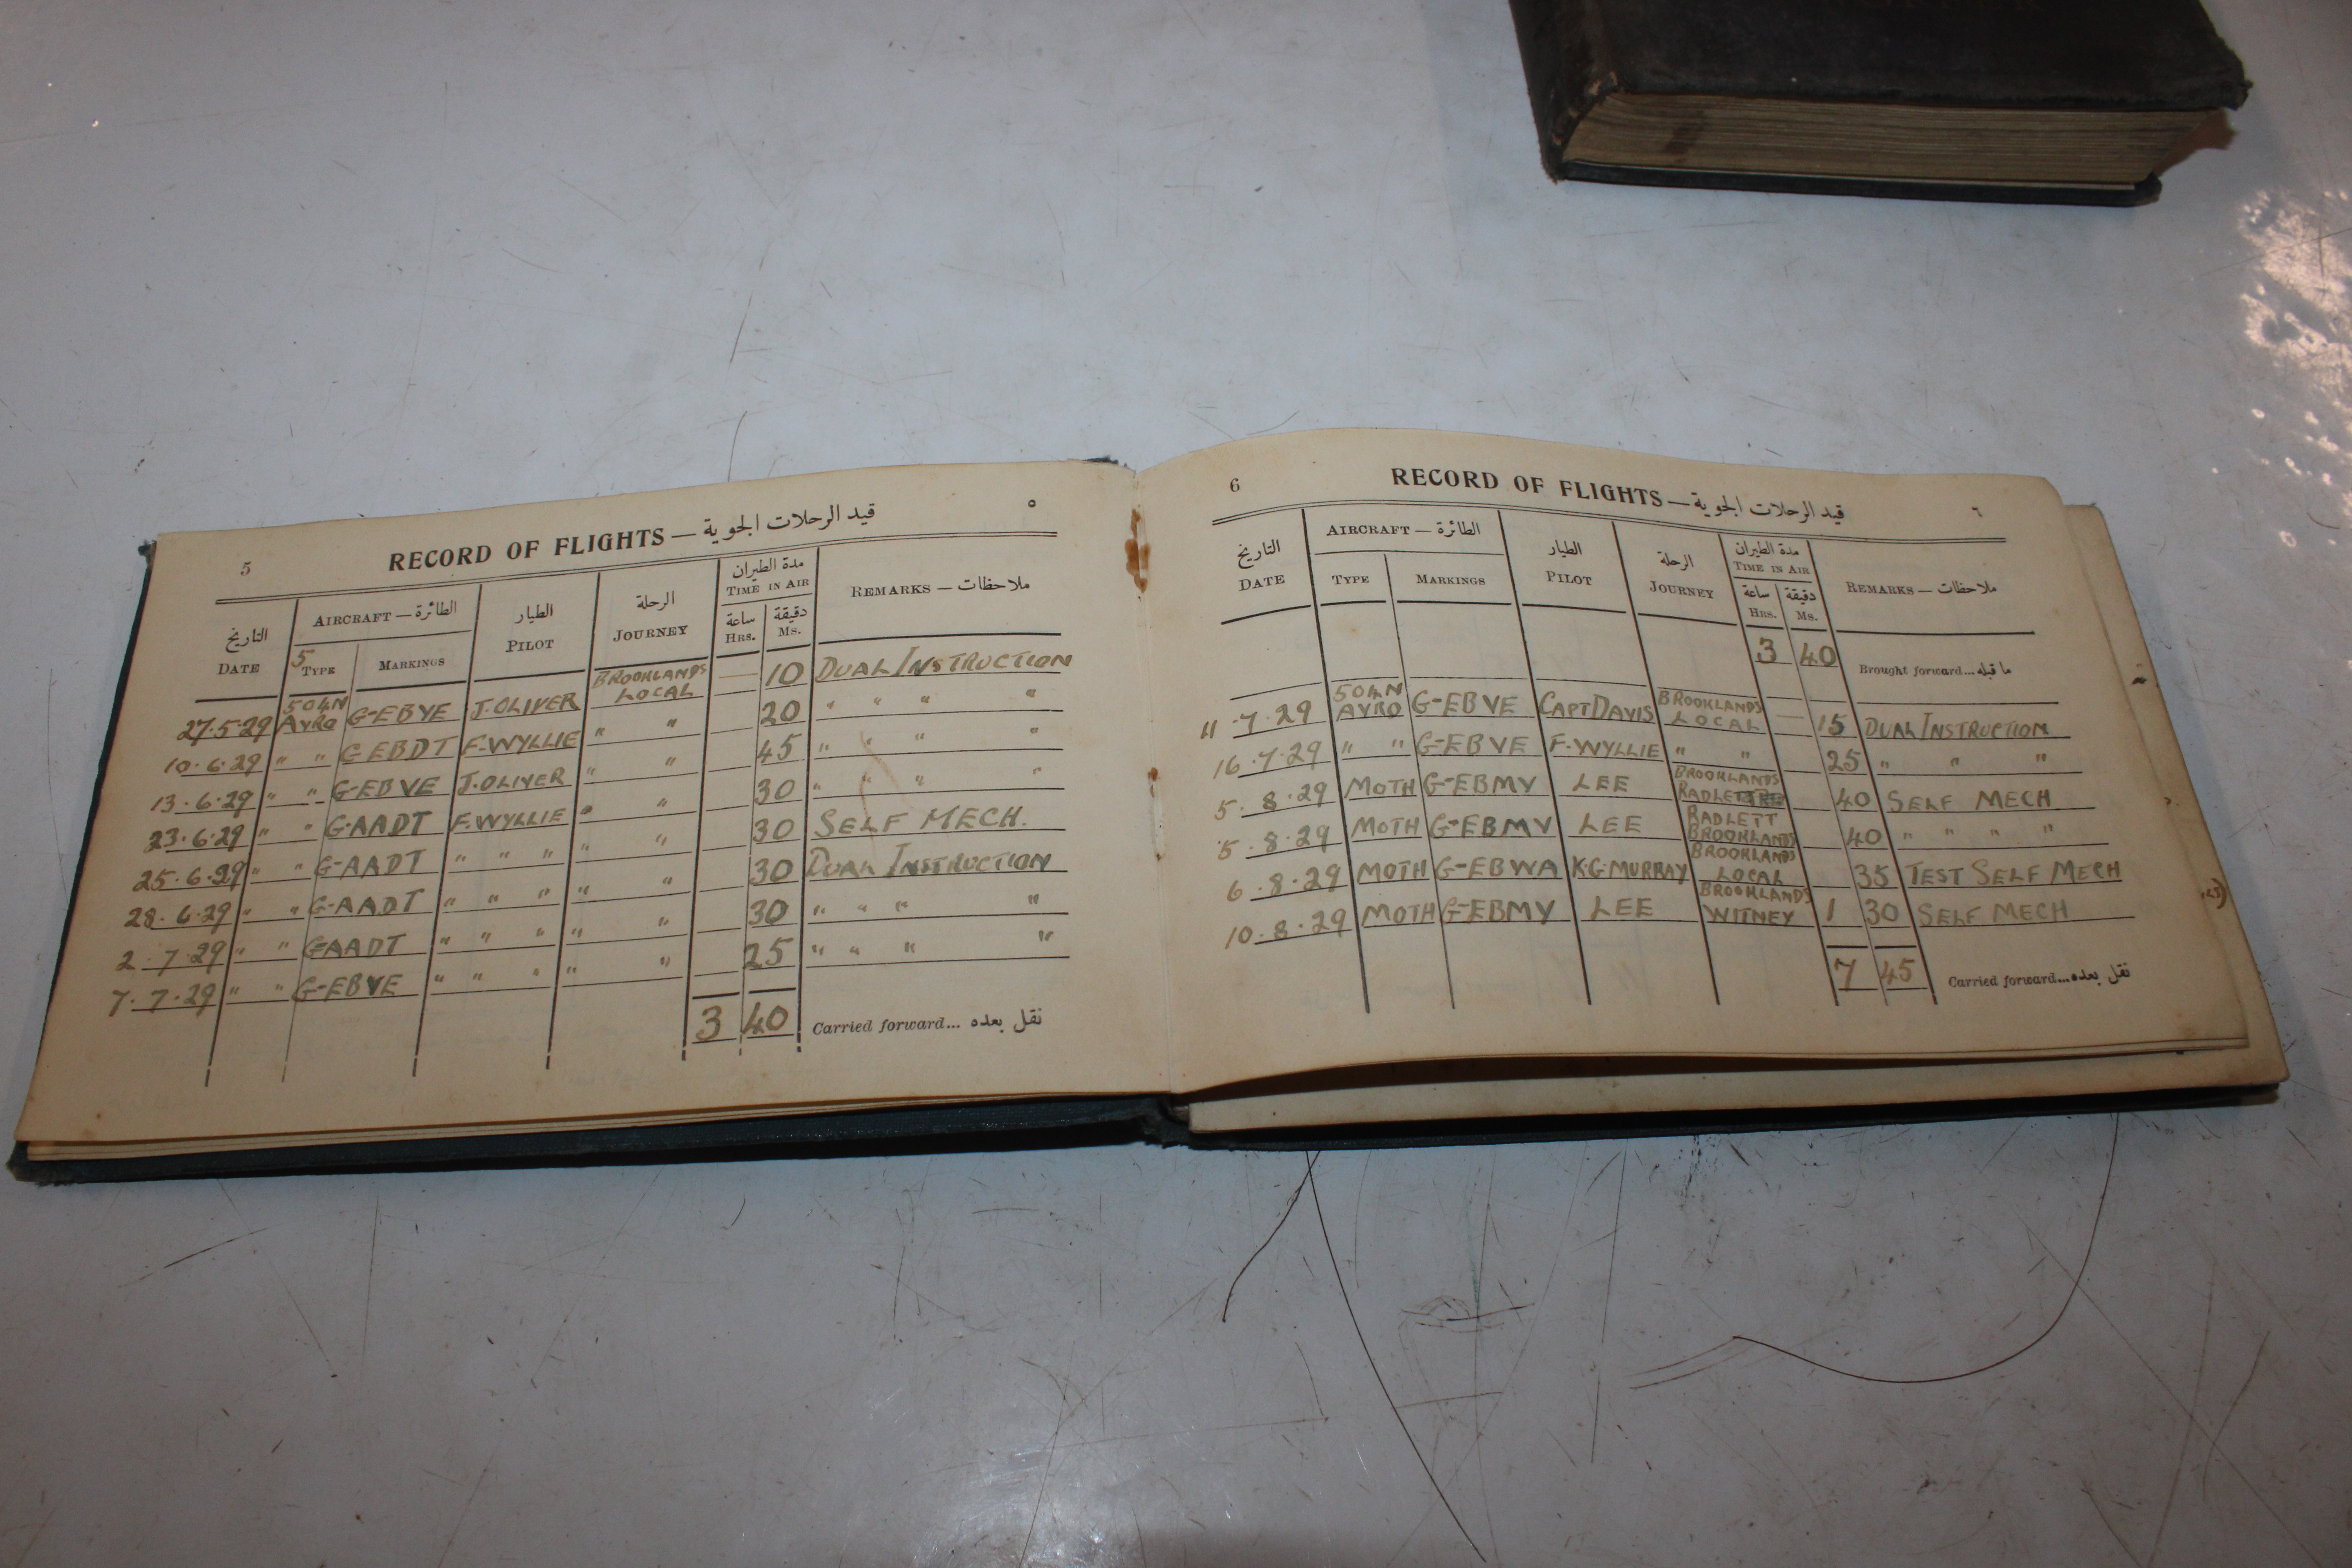 5 RECORD OF FLIGHTS — قيد الرحلات الجوية ٥
التاريخ AIRCRAFT — الطائرة الطيار الرحلة مدة الطيران TIME IN AIR REMARKS — ملاحظات
DATE 5 TYPE MARKINGS PILOT JOURNEY ساعة HRS. دقيقة MS.
27.5.29 504N AVRO G-EBVE J.OLIVER BROOKLANDS LOCAL — 10 DUAL INSTRUCTION
10.6.29 " " G EBDT F.WYLLIE " " 20 " " " "
13.6.29 " " G-EBVE J.OLIVER " " 45 " " " "
23.6.29 " " G-AADT F.WYLLIE " " 30 " " " "
25.6.29 " " G-AADT " " " " " 30 SELF MECH.
28.6.29 " " G-AADT " " " " " 30 DUAL INSTRUCTION
2.7.29 " " G-AADT " " " " " 30 " " " "
7.7.29 " " G-EBVE " " " " " 25 " " " "
3 40 Carried forward... نقل بعده
6 RECORD OF FLIGHTS — قيد الرحلات الجوية ٦
التاريخ AIRCRAFT — الطائرة الطيار الرحلة مدة الطيران TIME IN AIR REMARKS — ملاحظات
DATE TYPE MARKINGS PILOT JOURNEY ساعة HRS. دقيقة MS.
3 40 Brought forward... ما قبله
11.7.29 504N AVRO G-EBVE CAPT DAVIS BROOKLANDS LOCAL — 15 DUAL INSTRUCTION
16.7.29 " " G-EBVE F.WYLLIE " " 25 " " "
5.8.29 MOTH G-EBMV LEE BROOKLANDS RADLETT 40 SELF MECH
5.8.29 MOTH G-EBMV LEE RADLETT BROOKLANDS 40 " " " "
6.8.29 MOTH G-EBWA K.G.MURRAY BROOKLANDS LOCAL 35 TEST SELF MECH
10.8.29 MOTH G-EBMV LEE BROOKLANDS WITNEY 1 30 SELF MECH
7 45 Carried forward... نقل بعده